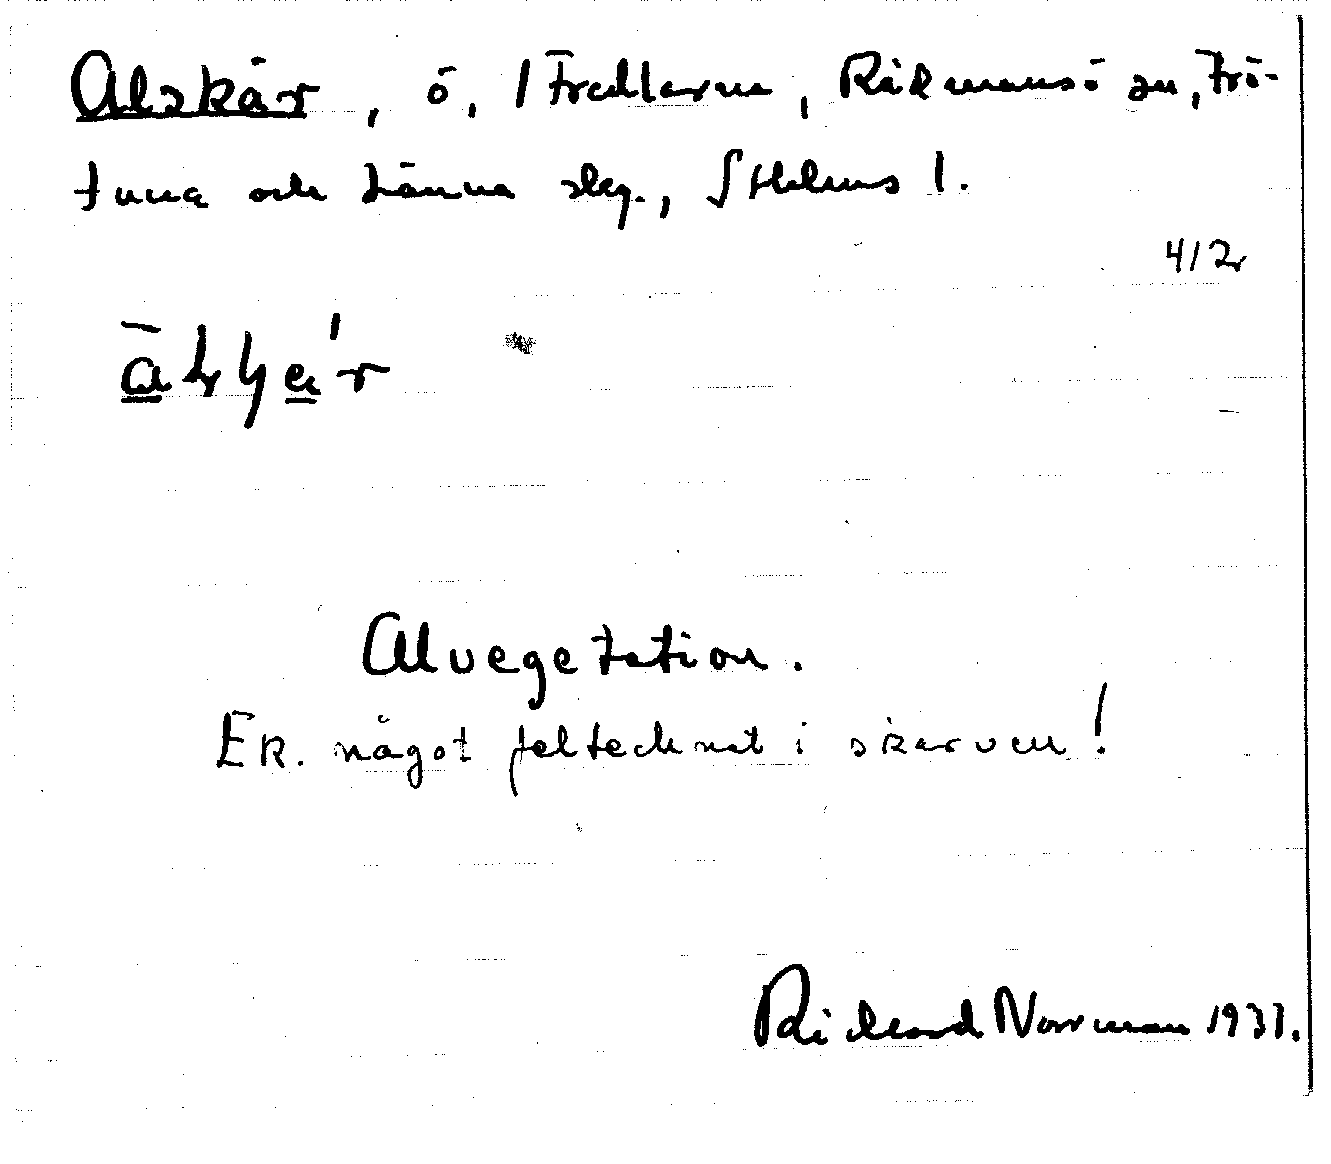 Alskär, ö, 1 Fredlarna, Rådmansö sn, Frö-
tuna och Länna slg., Sthlms l.
4/2
Alvegetation.
Ek. något feltecknat i skarven!
Rickard Norrman 1933.